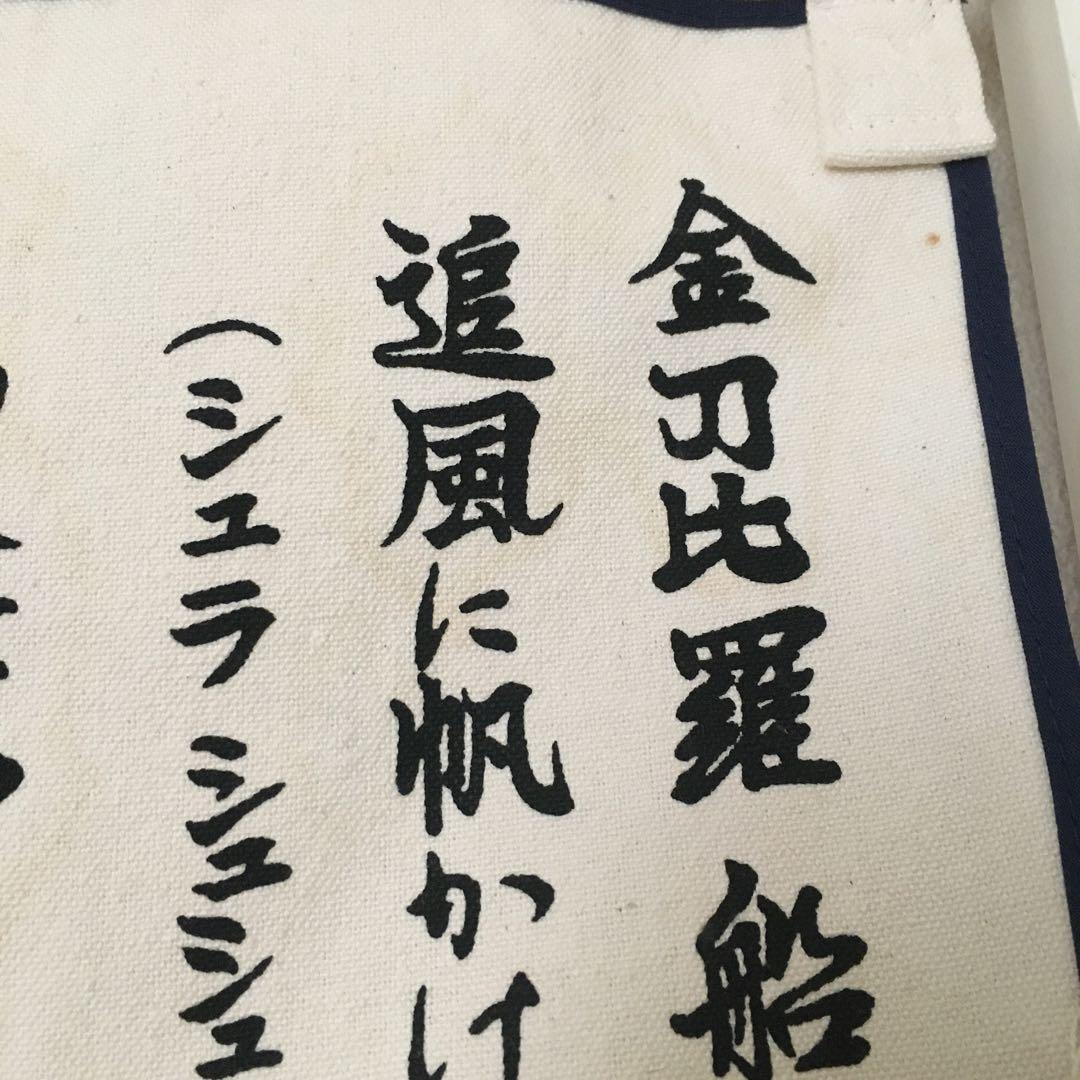 金刀比羅 船
追風に帆かけ
(シュラ シュシュ